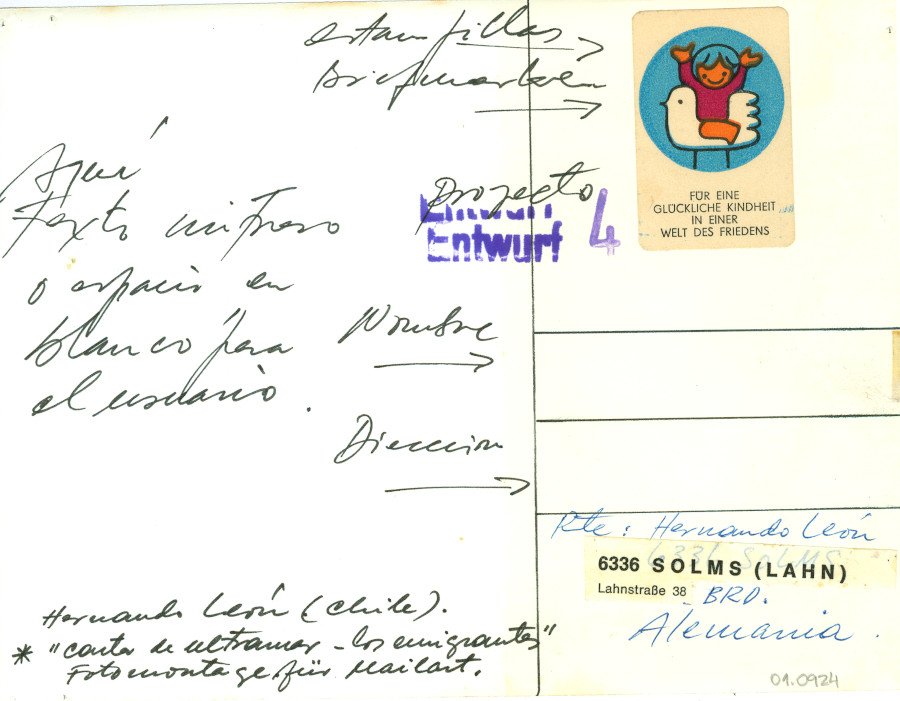 estampillas
Briefmarken
FÜR EINE
GLÜCKLICHE KINDHEIT
IN EINER
WELT DES FRIEDENS
Proyecto
Entwurf
Entwurf 4
Aquí
Texto impreso
o espacio en
blanco para
el usuario.
Nombre
Direccion
Rte: Hernando León
6336 SOLMS
6336 SOLMS (LAHN)
Lahnstraße 38 BRD.
Alemania.
Hernando León (Chile).
* "carta de ultramar - los emigrantes"
Fotomontage für Mailart.
01.0924